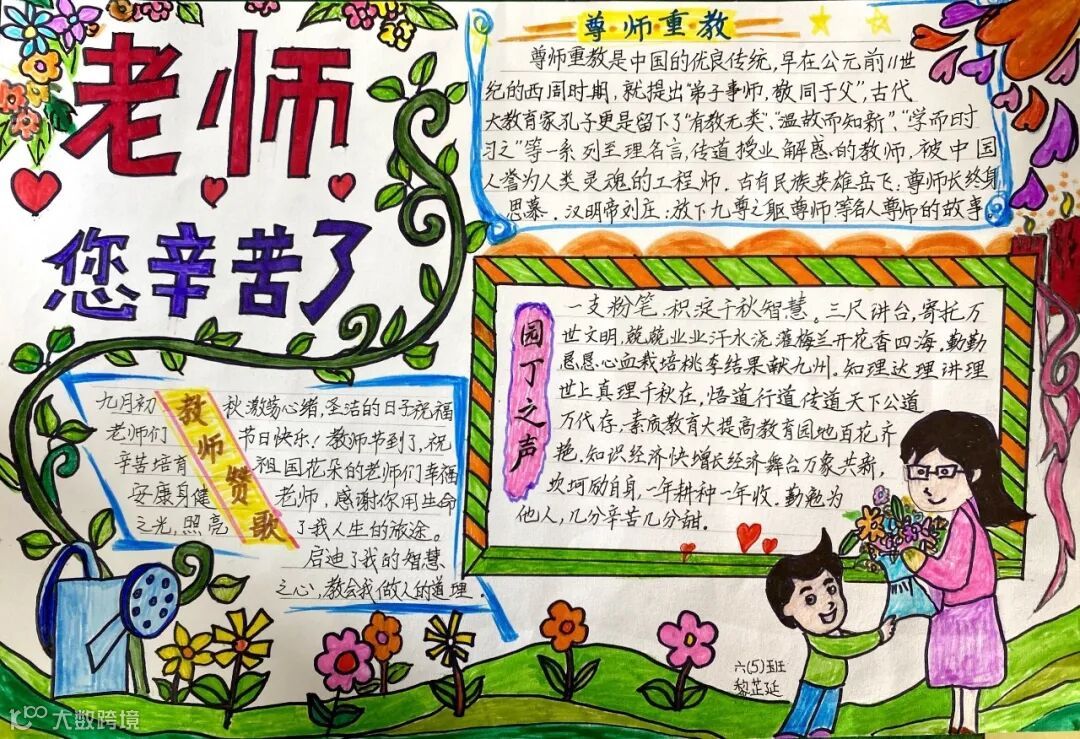 老师
您辛苦了
尊师重教
尊师重教是中国的优良传统,早在公元前11世
纪的西周时期,就提出“弟子事师,敬同于父”,古代
大教育家孔子更是留下了“有教无类”,“温故而知新”,“学而时
习之”等一系列至理名言,传道授业解惑的教师,被中国
人誉为人类灵魂的工程师.古有民族英雄岳飞:尊师长终身
思慕.汉明帝刘庄:放下九尊之躯尊师等名人尊师的故事.
园丁之声
一支粉笔.积淀千秋智慧.三尺讲台,寄托万
世文明,兢兢业业汗水浇灌梅兰开花香四海,勤勤
恳恳心血栽培桃李结果献九州.知理达理讲理
世上真理千秋在,悟道行道传道天下公道
万代存.素质教育大提高教育园地百花齐
艳.知识经济快增长经济舞台万象共新,
坎坷励自身,一年耕种一年收.勤勉为
他人,几分辛苦几分甜.
教师赞歌
九月初秋激荡心绪,圣洁的日子祝福
老师们节日快乐!教师节到了,祝
辛苦培育祖国花朵的老师们幸福
安康身健老师,感谢你用生命
之光,照亮了我人生的旅途。
启迪了我的智慧
之心,教会我做人的道理.
六(5)班
黎芷延
大数跨境